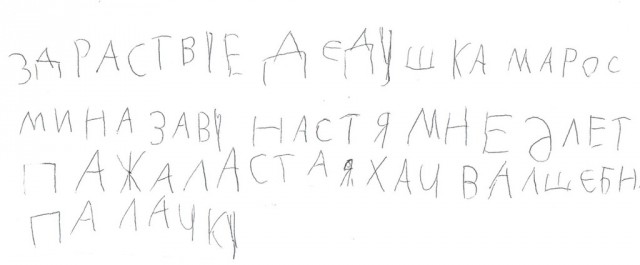 ЗДРАСТВIЕ ДЕДУШКА МАРОС
МИНА ЗАВУ НАСТЯ МНЕ 2 ЛЕТ
ПАЖАЛАСТА Я ХАЧ ВАЛШЕБН
ПАЛАЧКУ